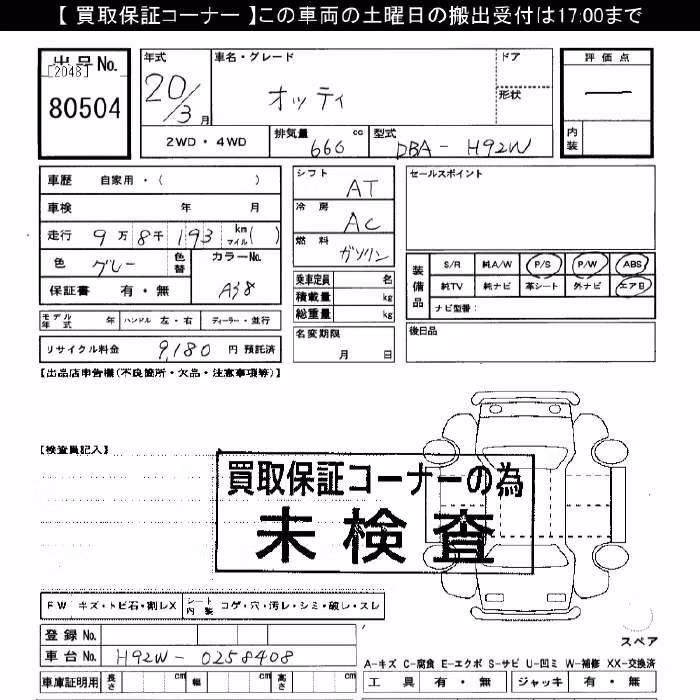 【 買取保証コーナー 】この車両の土曜日の搬出受付は17:00まで
出品No.
[2048]
80504
年式
20/3月
車名・グレード
オッティ
ドア
形状
評価点
—
内装
2WD・4WD
排気量 660 cc
型式 DBA - H92W
車歴 自家用・( )
車検 年 月
走行 9万8千193 km マイル( )
色 グレー
色替
カラーNo. A38
保証書 有・無
シフト AT
冷房 AC
燃料 ガソリン
乗車定員 名
積載量 kg
総重量 kg
セールスポイント
装備品
S/R 純A/W P/S P/W ABS
純TV 純ナビ 革シート 外ナビ エアB
ナビ型番:
モデル年式 年 ハンドル 左・右 ディーラー・並行
名変期限
月 日
後日品
リサイクル料金 9,180 円 預託済
【出品店申告欄(不良箇所・欠品・注意事項等)】
【検査員記入】
買取保証コーナーの為
未検査
FW キズ・トビ石・割レX
シート内装 コゲ・穴・汚レ・シミ・破レ・スレ
登録No.
車台No. H92W- 0258408
車庫証明用 長さ cm 幅 cm 高さ cm
スペア
A-キズ C-腐食 E-エクボ S-サビ U-凹ミ W-補修 XX-交換済
工具 有・無 ジャッキ 有・無